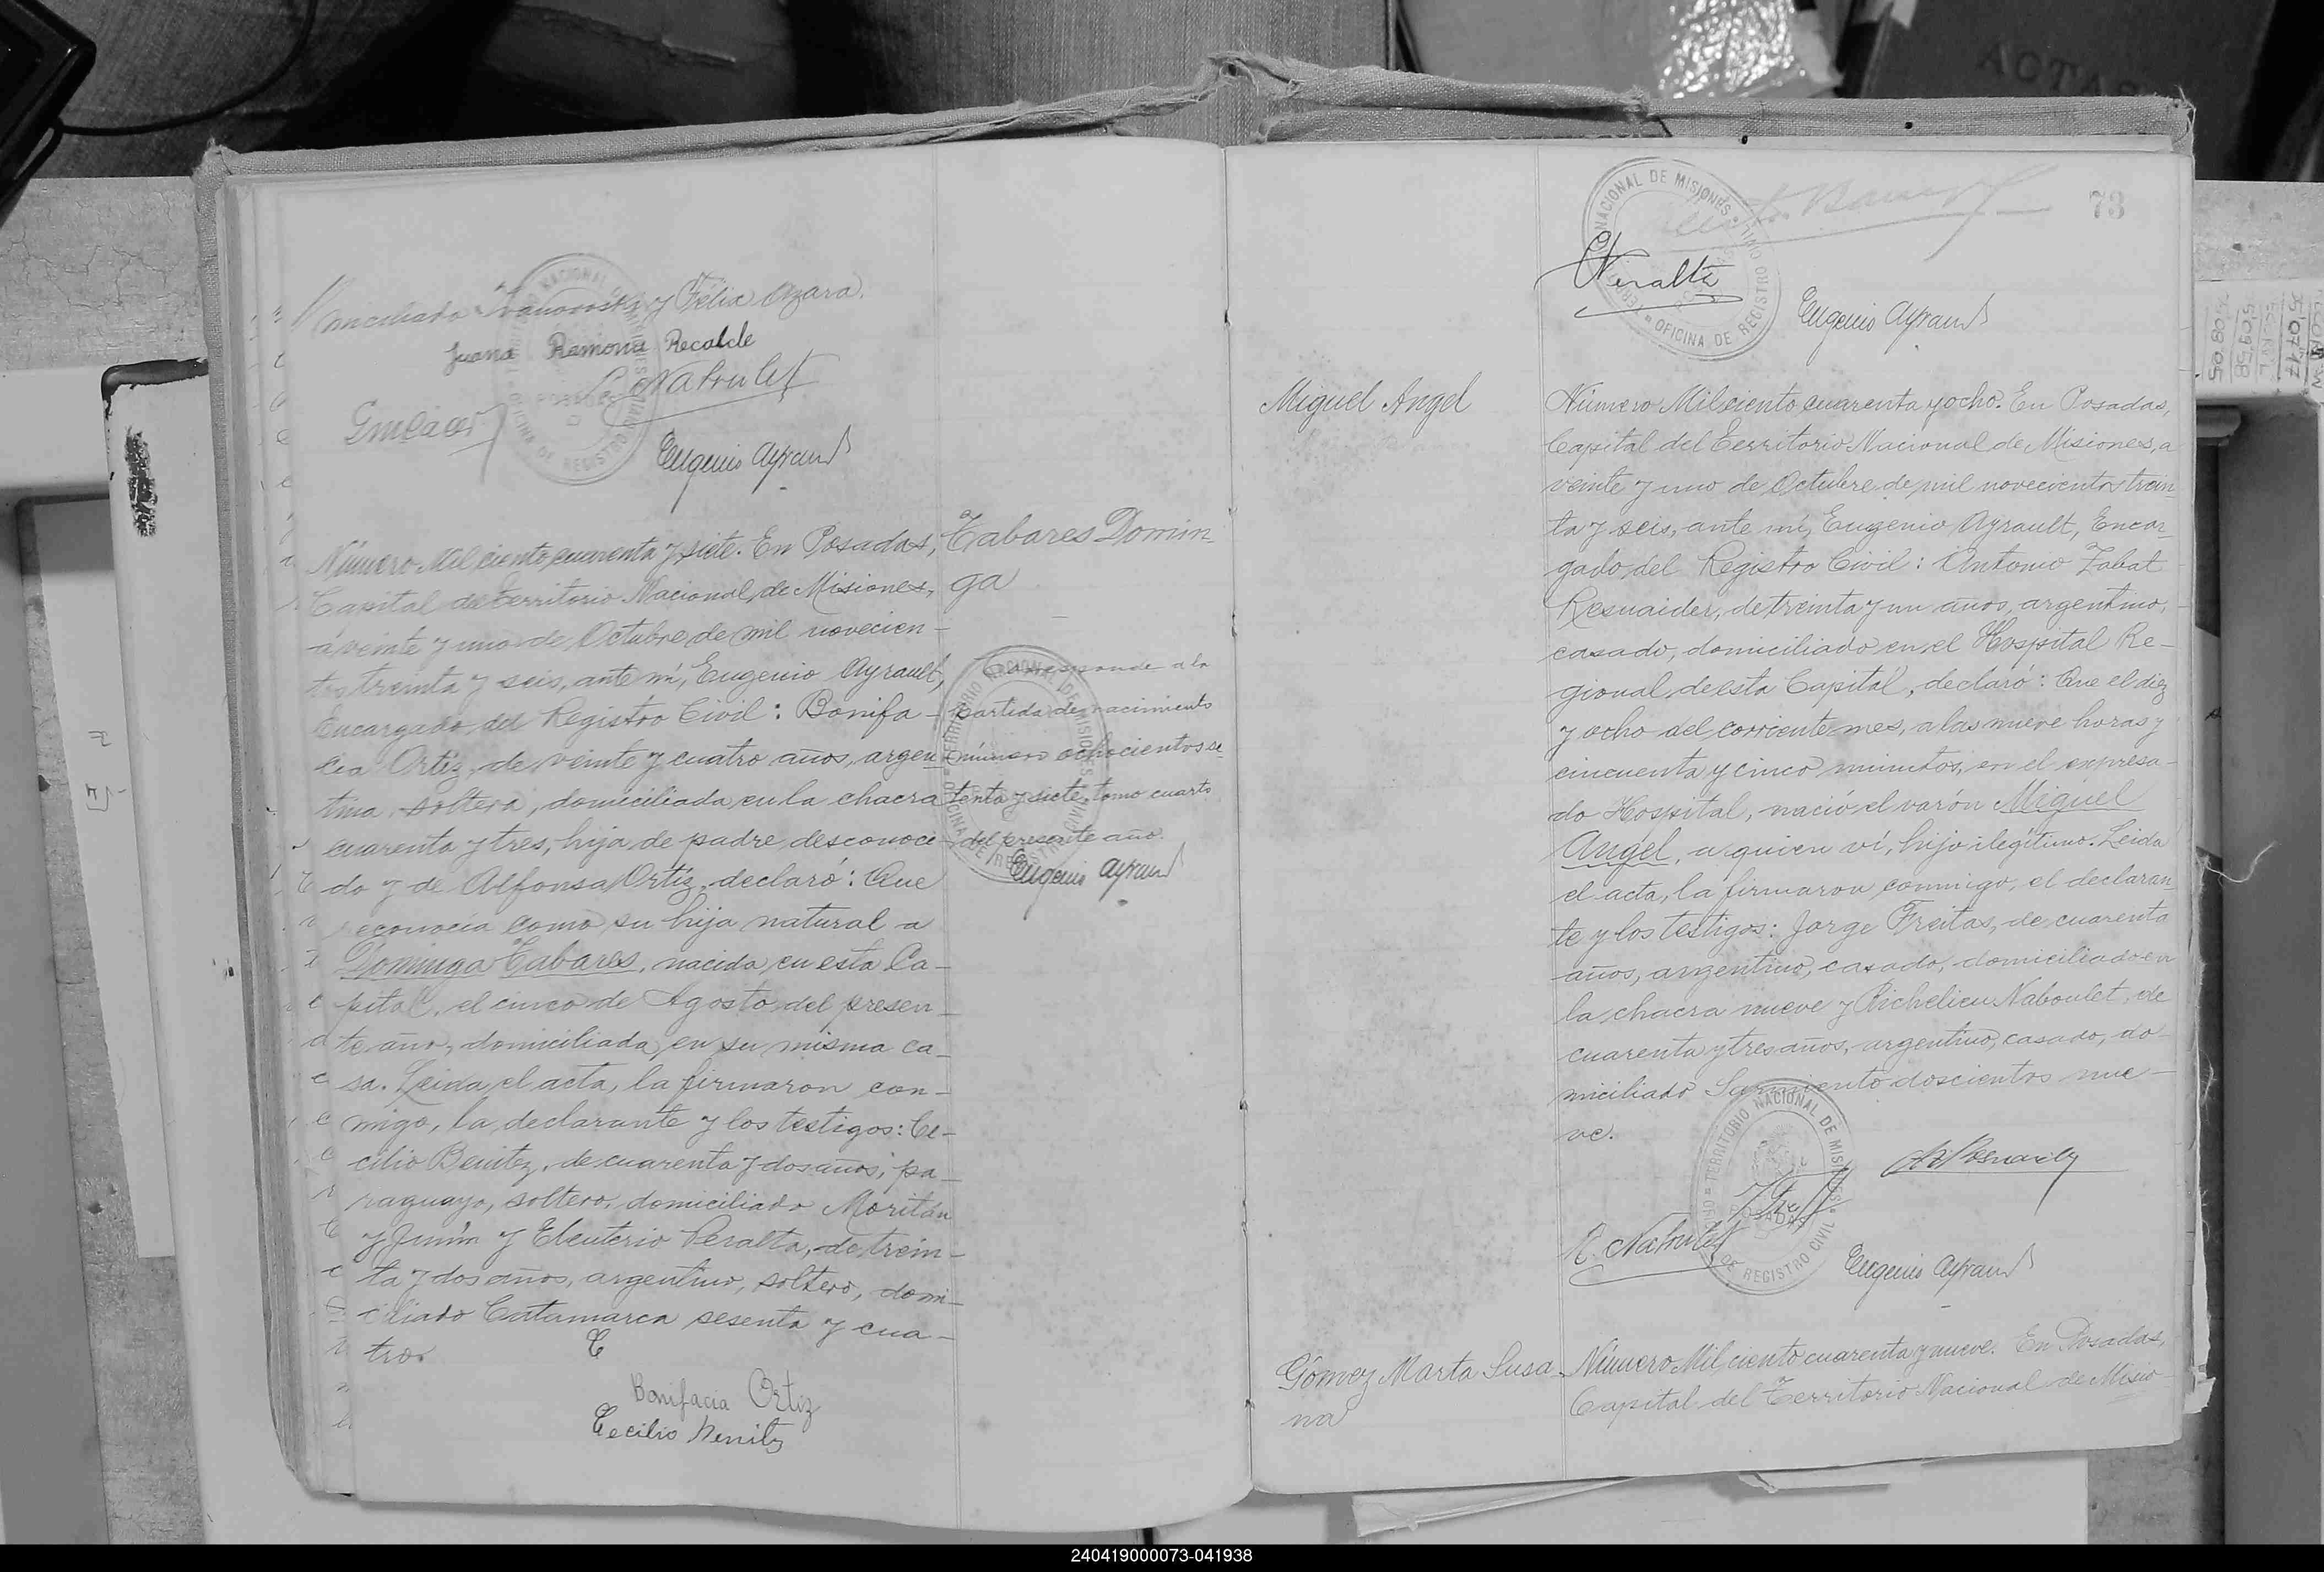 miciliado Ivanowski y Félix Azara.
Juana Ramona Recalde
Naboulet
Eugenio Ayrault
Número Mil ciento cuarenta y siete. En Posadas,
Capital del Territorio Nacional de Misiones,
a veinte y uno de Octubre de mil novecien-
tos treinta y seis, ante mí, Eugenio Ayrault,
Encargado del Registro Civil: Bonifa-
cia Ortiz, de veinte y cuatro años, argen-
tina, soltera, domiciliada en la chacra
cuarenta y tres, hija de padre desconoci-
do y de Alfonsa Ortiz, declaró: Que
reconocía como su hija natural a
Dominga Tabares, nacida en esta Ca-
pital, el cinco de Agosto del presen-
te año, domiciliada en su misma ca-
sa. Leida el acta, la firmaron con-
migo, la declarante y los testigos: Ce-
cilio Benitez, de cuarenta y dos años, pa-
raguayo, soltero, domiciliado Moritán
y Junín y Eleuterio Peralta, de trein-
ta y dos años, argentino, soltero, domi-
ciliado Catamarca sesenta y cua-
tro.
Bonifacia Ortiz
Cecilio Benitez
Tabares Domin-
ga
Corresponde a la
partida de nacimiento
número ochocientos se-
tenta y siete, tomo cuarto
del presente año.
Eugenio Ayrault
73
NACIONAL DE MISIONES
OFICINA DE REGISTRO CIVIL
Peralta
Eugenio Ayrault
Miguel Angel
Número Mil ciento cuarenta y ocho. En Posadas,
Capital del Territorio Nacional de Misiones, a
veinte y uno de Octubre de mil novecientos trein-
ta y seis, ante mí, Eugenio Ayrault, Encar-
gado del Registro Civil: Antonio Zabat
Resnaider, de treinta y un años, argentino,
casado, domiciliado en el Hospital Re-
gional de esta Capital, declaró: Que el diez
y ocho del corriente mes, a las nueve horas y
cincuenta y cinco minutos, en el expresa-
do Hospital, nació el varón Miguel
Angel, a quien ví, hijo ilegítimo. Leida
el acta, la firmaron conmigo, el declaran-
te y los testigos: Jorge Freitas, de cuarenta
años, argentino, casado, domiciliado en
la chacra nueve y Richelieu Naboulet, de
cuarenta y tres años, argentino, casado, do-
miciliado Sarmiento doscientos nue-
ve.
TERRITORIO NACIONAL DE MISIONES
POSADAS
OFICINA DE REGISTRO CIVIL
R. Naboulet
Eugenio Ayrault
Gómez Marta Susa-
na
Número Mil ciento cuarenta y nueve. En Posadas,
Capital del Territorio Nacional de Misio-
240419000073-041938